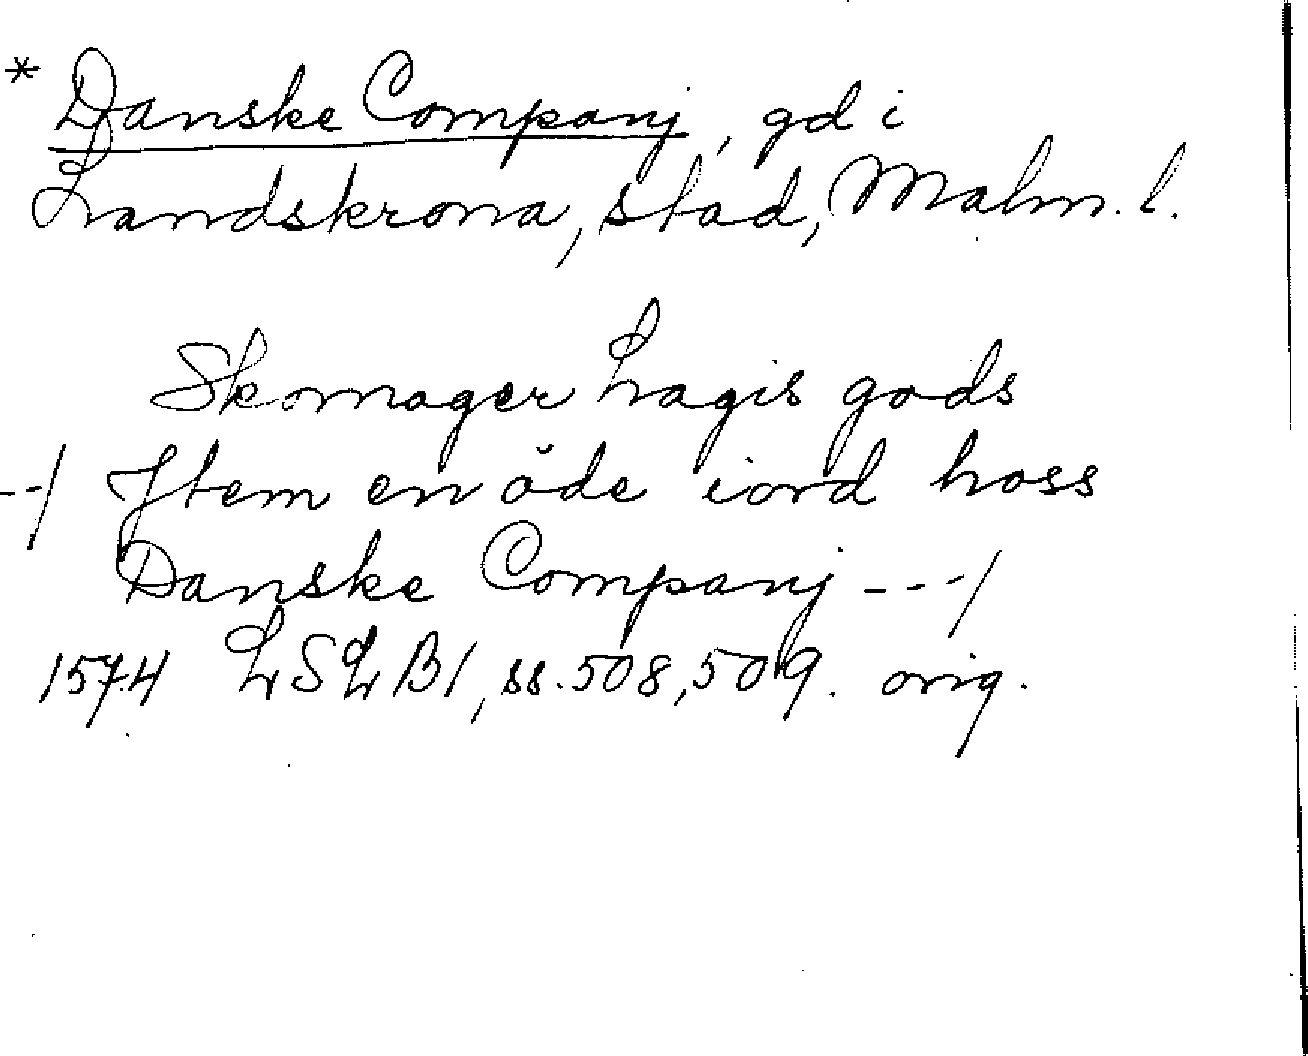 * Danske Companj, gd i
Landskrona, stad, Malm. l.
Skomager Lagis gods
--/ Jtem en öde iord hoss
Danske Companj ---/
1574 LSLB1, ss. 508, 509. orig.